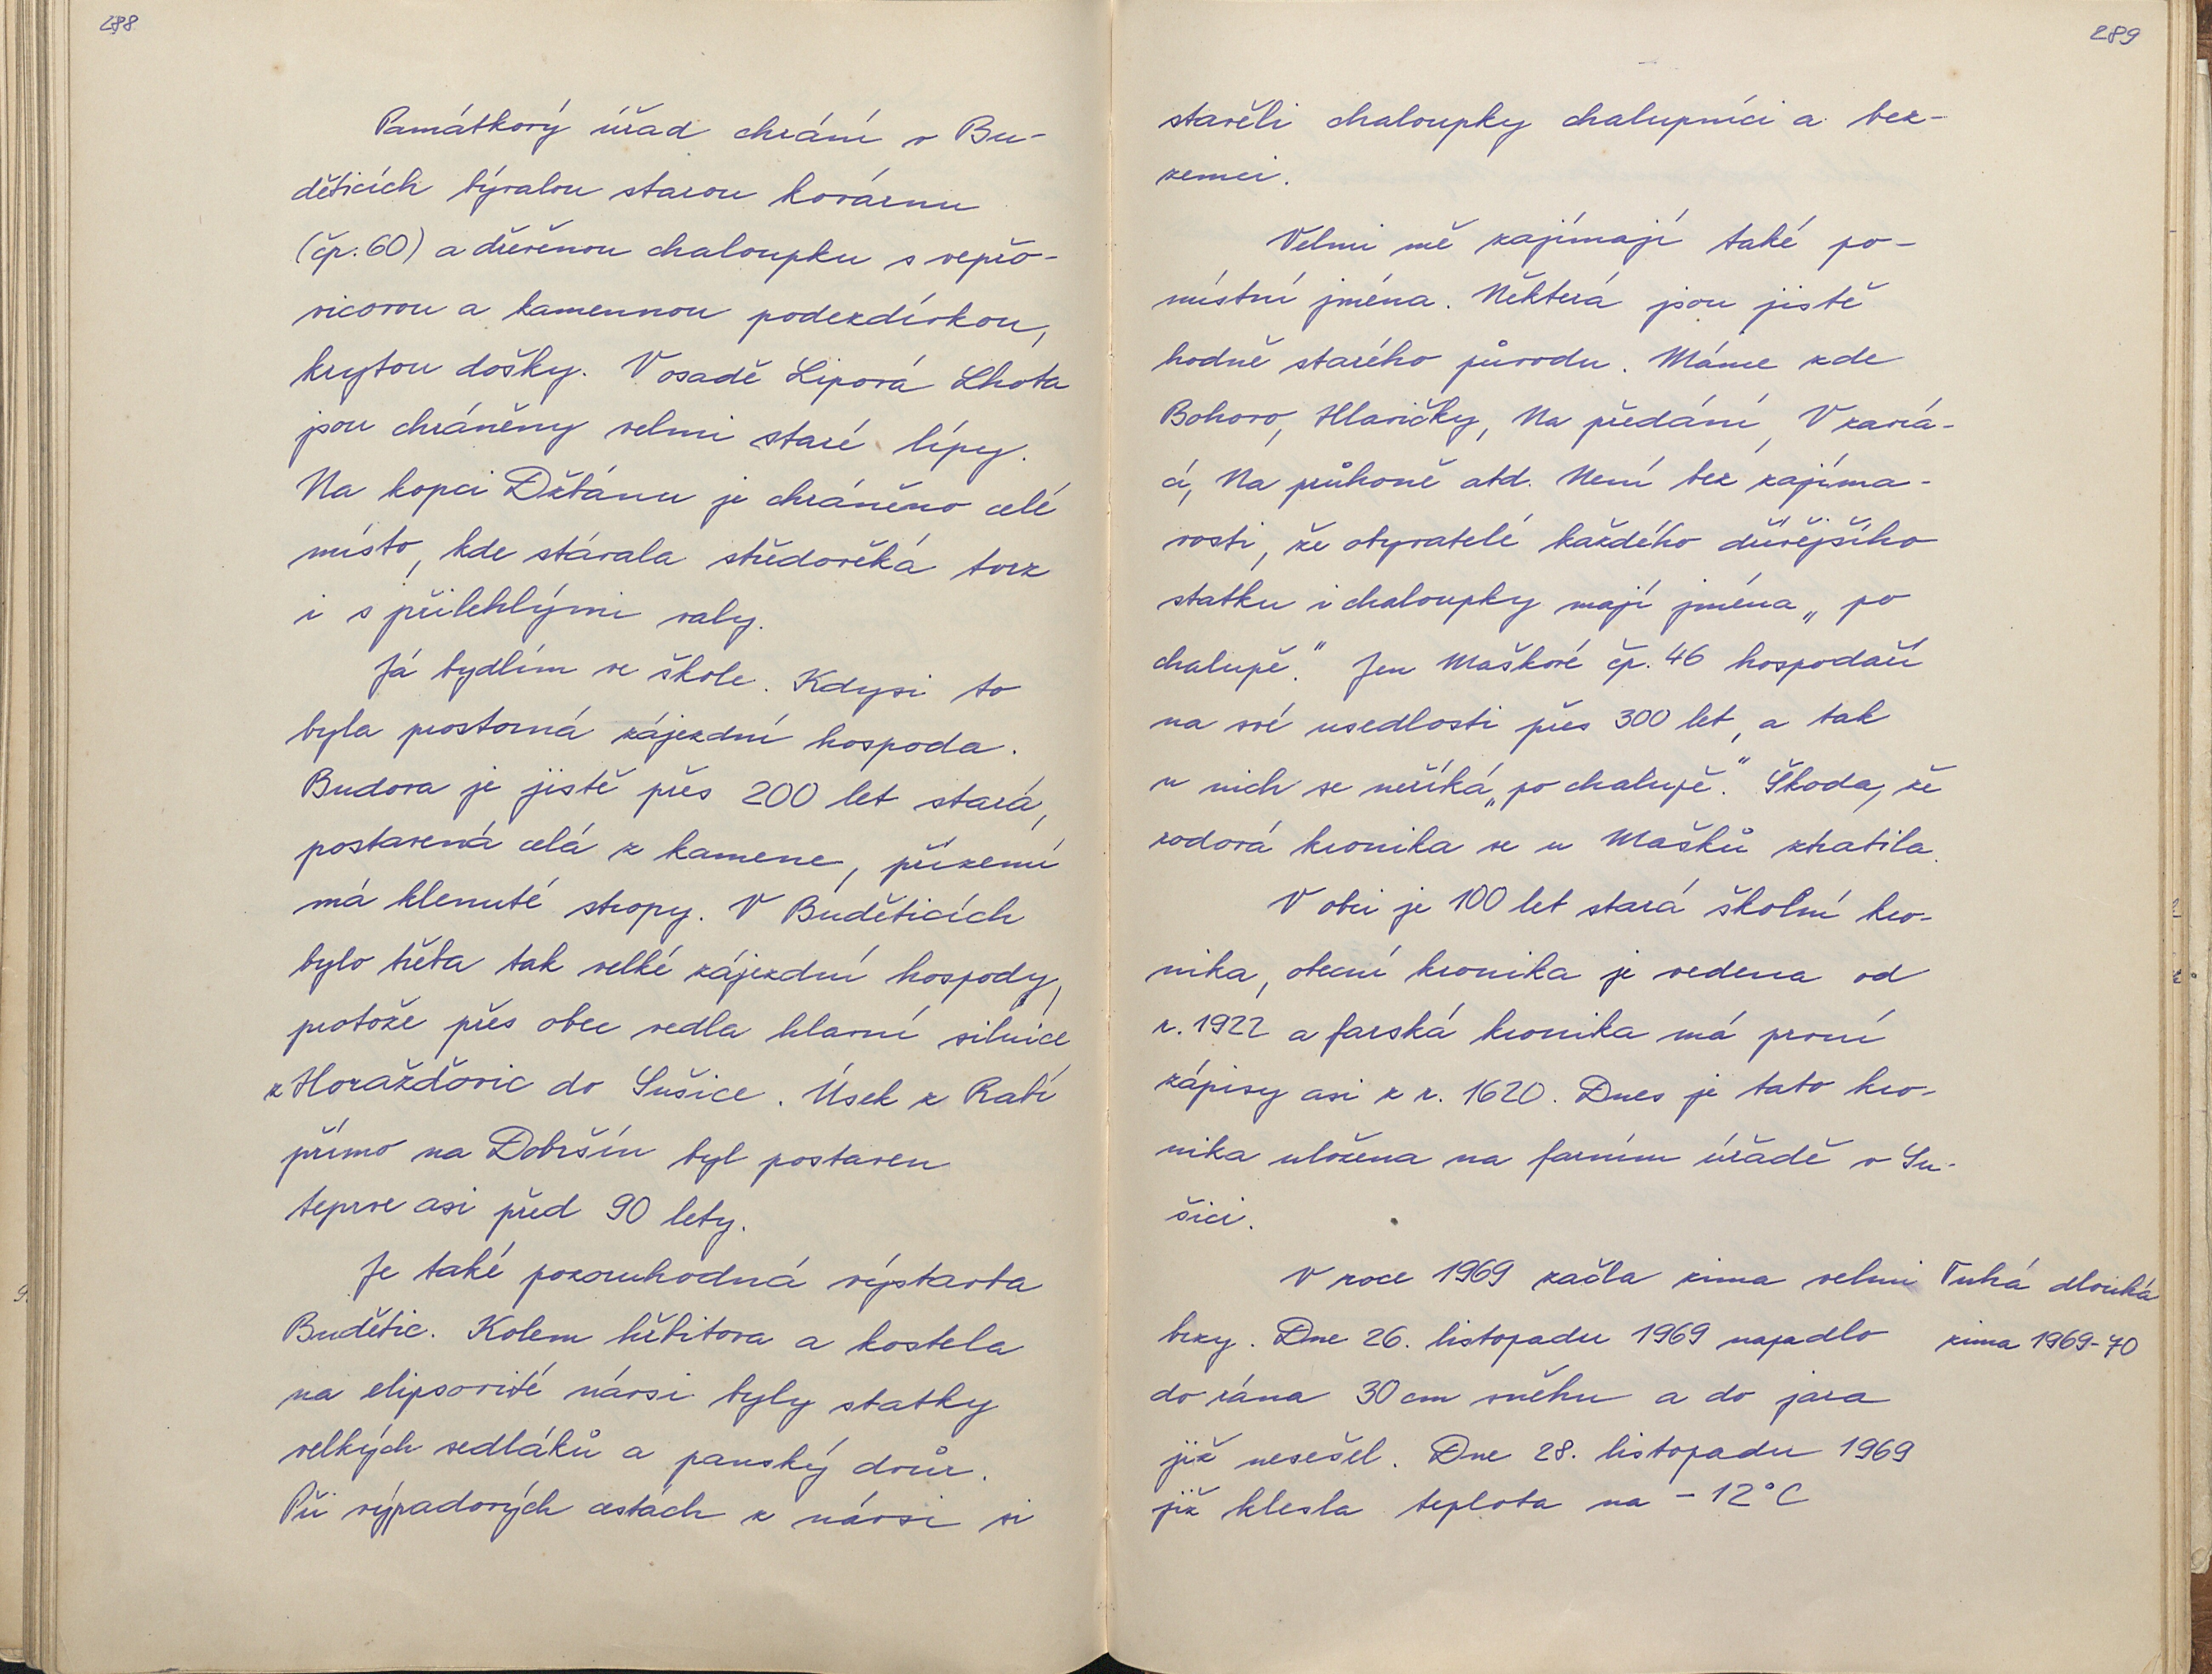 288
Památkový úřad chrání v Bu-
děticích bývalou starou kovárnu
(čp. 60) a dřevěnou chaloupku s vepřo-
vicovou a kamennou podezdívkou,
krytou došky. V osadě Lipová Lhota
jsou chráněny velmi staré lípy.
Na kopci Džbánu je chráněno celé
místo, kde stávala středověká tvrz
i s přilehlými valy.
Já bydlím ve škole. Kdysi to
byla prostorná zájezdní hospoda.
Budova je jistě přes 200 let stará,
postavená celá z kamene, přízemí
má klenuté stropy. V Buděticích
bylo třeba tak velké zájezdní hospody,
protože přes obec vedla hlavní silnice
z Horažďovic do Sušice. Úsek z Rabí
přímo na Dobršín byl postaven
teprve asi před 90 lety.
Je také pozoruhodná výstavba
Budětic. Kolem hřbitova a kostela
na elipsovité návsi byly statky
velkých sedláků a panský dvůr.
Při výpadových cestách z návsi si
289
stavěli chaloupky chalupníci a bez-
zemci.
Velmi mě zajímají také po-
místní jména. Některá jsou jistě
hodně starého původu. Máme zde
Bohovo, Hlavičky, Na předání, V zavrá-
cí, Na průhoně atd. Není bez zajíma-
vosti, že obyvatelé každého dřívějšího
statku i chaloupky mají jména „po
chalupě." Jen Maškové čp. 46 hospodaří
na své usedlosti přes 300 let, a tak
u nich se neříká „po chalupě." Škoda, že
rodová kronika se u Mašků ztratila.
V obci je 100 let stará školní kro-
nika, obecní kronika je vedena od
r. 1922 a farská kronika má první
zápisy asi z r. 1620. Dnes je tato kro-
nika uložena na farním úřadě v Su-
šici.
V roce 1969 začla zima velmi
brzy. Dne 26. listopadu 1969 napadlo
do rána 30 cm sněhu a do jara
již nesešel. Dne 28. listopadu 1969
již klesla teplota na - 12°C
Tuhá dlouhá
zima 1969-70